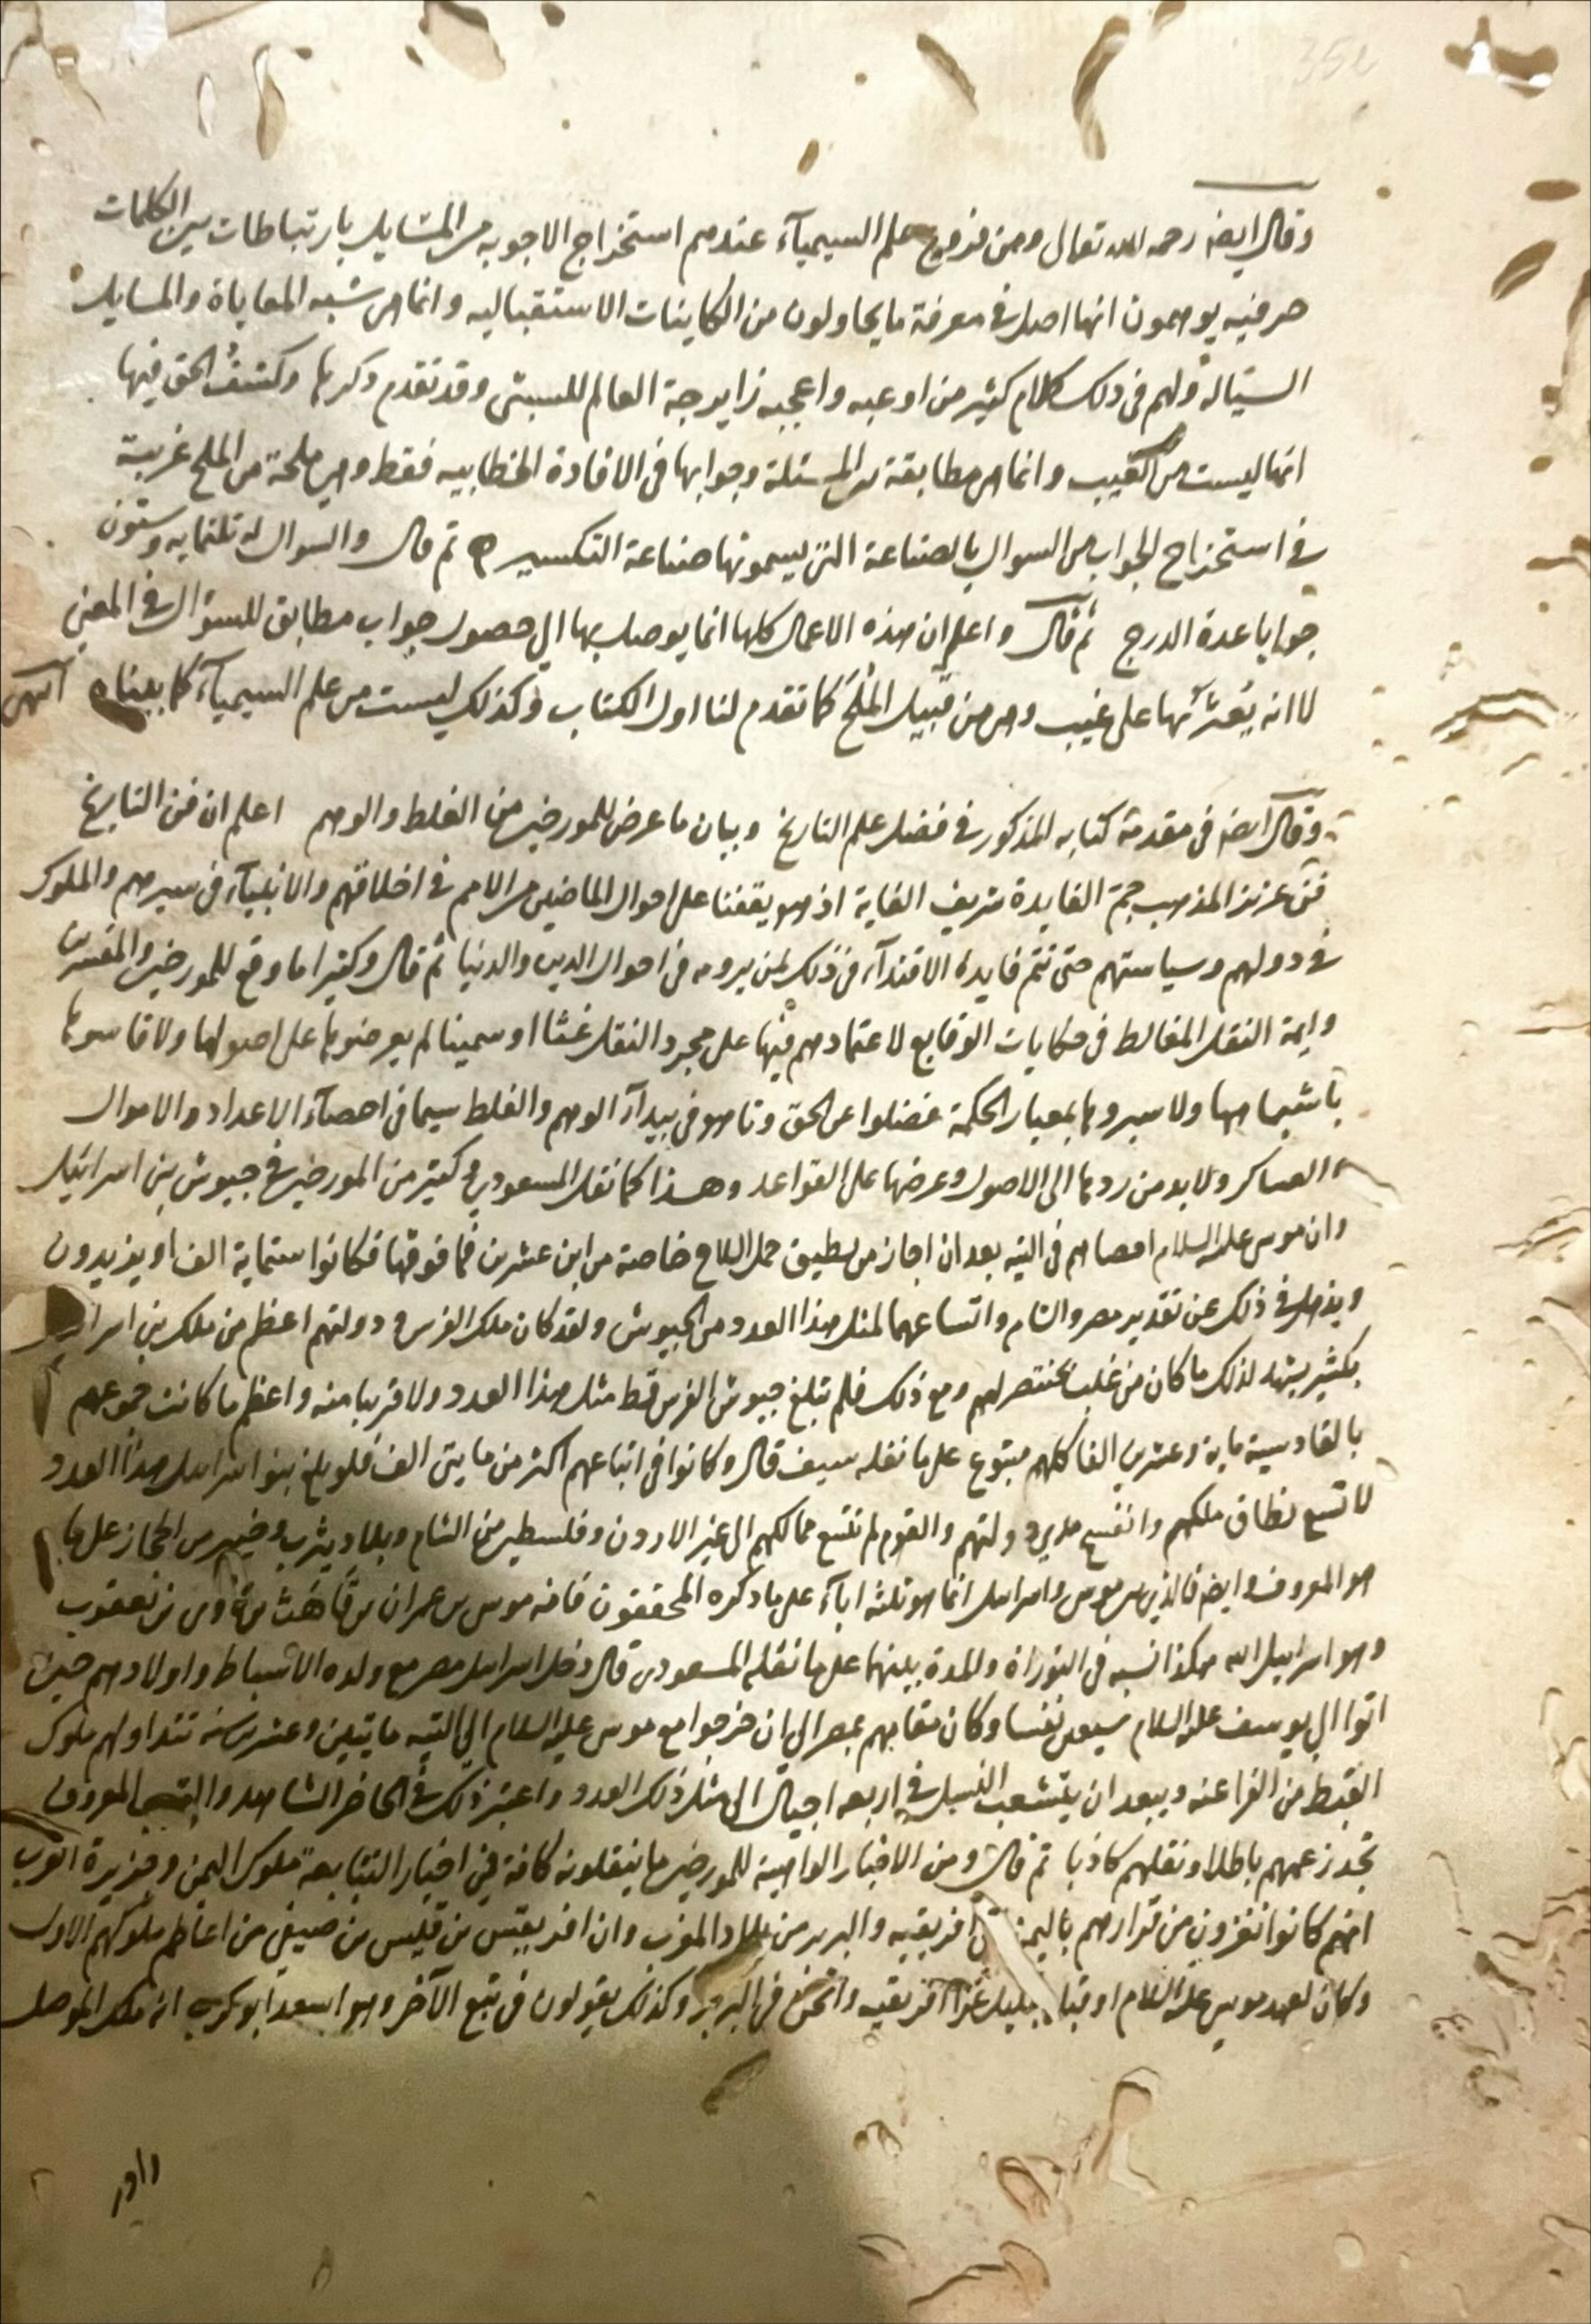 وقال ايضه رحمه الله تعالى ومن فروع علم السيمياء عندهم استخراج الاجوبه من المسايل بارتباطات بين الكلمات
حرفيه يوهمون انها اصل في معرفة ما يحاولون من الكاينات الاستقباليه وانما هى شبه المعاياة والمسايل
السياله ولهم فى ذلك كلام كثير من اوعبه واعجبه زايرجة العالم للسبتى وقد تقدم ذكرها وكشف الحق فيها
انها ليست من الغيب وانما هى مطابقة بين المسئلة وجوابها فى الافادة الخطابيه فقط وهى ملحة من الملح غريبة
فى استخراج الجواب من السوال بالصناعة التى يسمونها صناعة التكسير ثم قال والسوال له ثلثمايه وستون
جوابا عدة الدرج ثم قال واعلم ان هذه الاعمال كلها انما يوصل بها الى حصول جواب مطابق للسؤال فى المعنى
لا انه يعثر بها على غيب وهى من قبيل الملح كما تقدم لنا اول الكتاب وكذلك ليست من علم السيمياء كما بيناه انتهى
وقال ايضه فى مقدمة كتابه المذكور فى فضل علم التاريخ وبيان ما عرض للمورخين من الغلط والوهم اعلم ان فن التاريخ
فن عزيز المذهب جم الفايدة شريف الغاية اذ هو يقفنا على احوال الماضين من الامم فى اخلاقهم والانبياء فى سيرهم والملوك
فى دولهم وسياستهم حتى تتم فايدة الاقتداء فى ذلك لمن يرومه فى احوال الدين والدنيا ثم قال وكثيرا ما وقع للمورخين والمفسرين
وايمة النقل المغالط فى حكايات الوقايع لاعتمادهم فيها على مجرد النقل غثا او سمينا لم يعرضوها على اصولها ولا قاسوها
باشباهها ولا سبروها بمعيار الحكمة فضلوا عن الحق وتاهو فى بيداء الوهم والغلط سيما فى احصاء الاعداد والاموال
والعساكر ولا بد من ردها الى الاصول وعرضها على القواعد وهذا كما نقل المسعودي وكثير من المورخين فى جيوش بنى اسرائيل
وان موسى عليه السلام احصاهم فى التيه بعد ان اجاز من يطيق حمل السلاح خاصة من ابن عشرين فما فوقها فكانوا ستماية الف او يزيدون
ويذهل فى ذلك عن تقدير مصر والشام واتساعهما لمثل هذا العدد من الجيوش ولقد كان ملك الفرس ودولتهم اعظم من ملك بنى اسرائيل
بكثير يشهد لذلك ما كان من غلب بختنصر لهم ومع ذلك فلم تبلغ جيوش الفرس قط مثل هذا العدد ولا قريبا منه واعظم ما كانت جموعهم
بالقادسية ماية وعشرين الفا كلهم متبوع على ما نقله سيف قال وكانوا فى اتباعهم اكثر من مايتى الف فلو بلغ بنوا اسراييل هذا العدد
لاتسع نطاق ملكهم وانفسح مدي دولتهم والقوم لم تتسع ممالكهم الى غير الاردن وفلسطين من الشام وبلاد يثرب وخيبر من الحجاز على ما
هو المعروف وايضه فالذي بين موسى واسراييل انما هو ثلثه اباء على ما ذكره المحققون فانه موسى بن عمران بن قاهث بن لاوى بن يعقوب
وهو اسراييل الله هكذا نسبه فى التوراة والمدة بينهما على ما نقله المسعودى قال دخل اسراييل مصر مع ولده الاسباط واولادهم حين
اتوا الى يوسف عليه السلام سبعين نفسا وكان مقامهم بمصر الى ان خرجوا مع موسى عليه السلام الى التيه مايتين وعشرين سنه تتداولهم ملوك
القبط من الفراعنه ويبعد ان يتشعب النسل فى اربعه اجيال الى مثل ذلك العدد واعتبر ذلك فى الحاضر الشاهد والقريب المعروف
تجد زعمهم باطلا ونقلهم كاذبا ثم قال ومن الاخبار الواهية للمورخين ما ينقلونه كافة فى اخبار التبابعة ملوك اليمن وجزيرة العرب
انهم كانوا يغزون من قرارهم باليمن افريقيه والبربر من بلاد المغرب وان افريقش بن قيس بن صيفى من اعاظم ملوكهم الاول
وكان لعهد موسى عليه السلام او قبله بقليل غزا افريقيه واثخن فى البربر وكذلك يقولون فى تبع الآخر وهو اسعد ابو كرب انه ملك الموصل